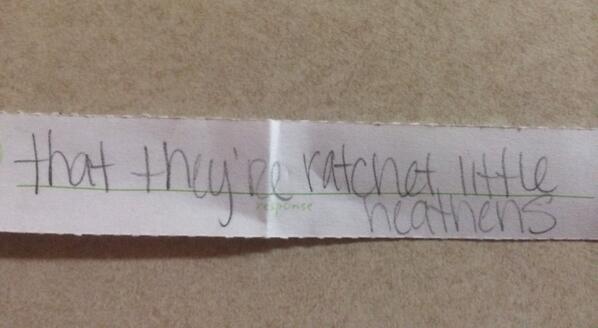 that they're ratchet little
response
heathens